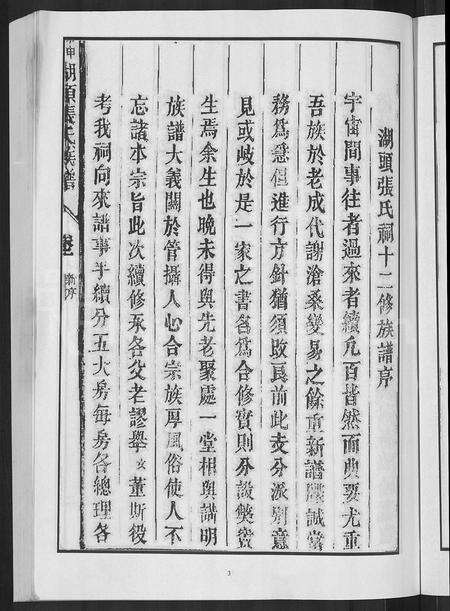 湖頭張氏祠十二修族譜序
宇宙間事往者過來者續凡百皆然而典要尤重
吾族於老成代謝滄桑變易之餘重新譜牒誠當
務爲急但進行方針猶須改良前此支分派別意
見或岐於是一家之書名爲合修實則分設獘竇
生焉余生也晚未得與先老聚處一堂相與講明
族譜大義關於管攝人心合宗族厚風俗使人不
忘諸本宗旨此次續修承各父老謬舉 董斯役
考我祠向來譜事手續分五大房每房各總理各
申湖頭張氏族譜
卷
新序
3